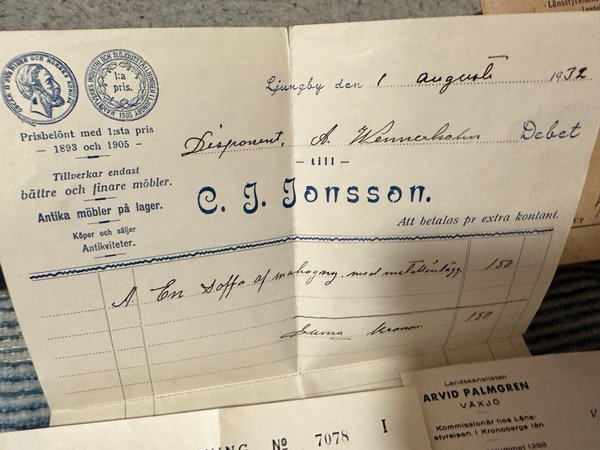 Länsstyrelsen
OSCAR II SVERIGES OCH NORGES KONUNG
1:a
pris.
1905
Prisbelönt med 1:sta pris
— 1893 och 1905 —
Tillverkar endast
bättre och finare möbler.
Antika möbler på lager.
Köper och säljer
Antikviteter.
Ljungby den 1 augusti 1932
Disponent. A. Wennerholm Debet
— till —
C. J. Jonsson.
Att betalas pr extra kontant.
A. En Soffa af mahogny. med metallinlägg. 150
Suma Kronor 150
NING No 7078 I
Landskanslisten
ARVID PALMGREN
VÄXJÖ
Kommissionär hos Läns-
styrelsen i Kronobergs län
1288
V